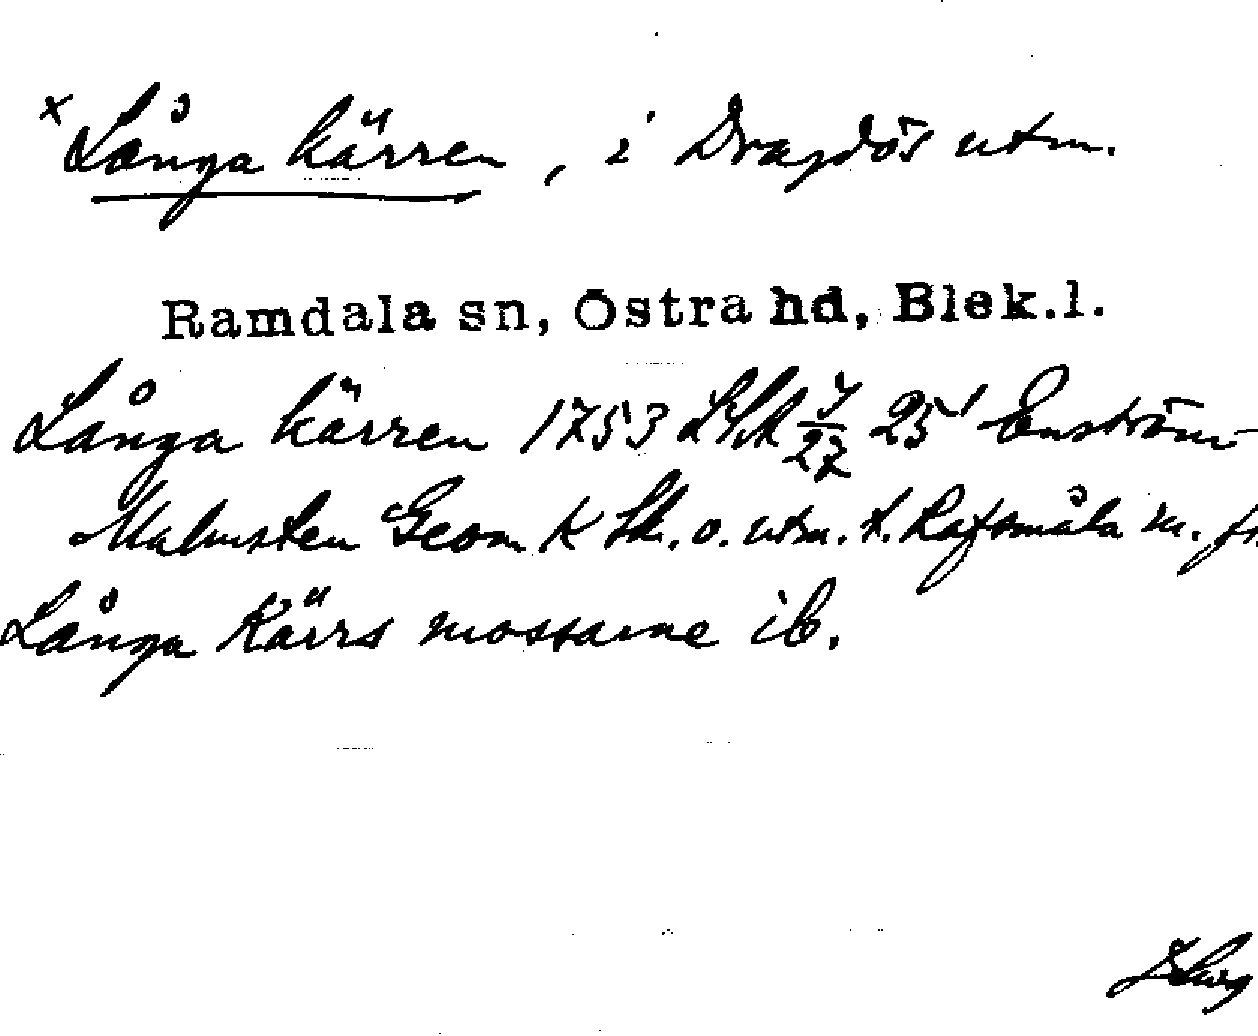 x Långa kärren, i Dragdös utm.
Ramdala sn, Östra hd, Blek.l.
Långa kärren 1753 LSA 25 Enström
Malmsten Geom K o. utm. t. Rafsmåla m. fl
Långa Kärrs mossarne ib.